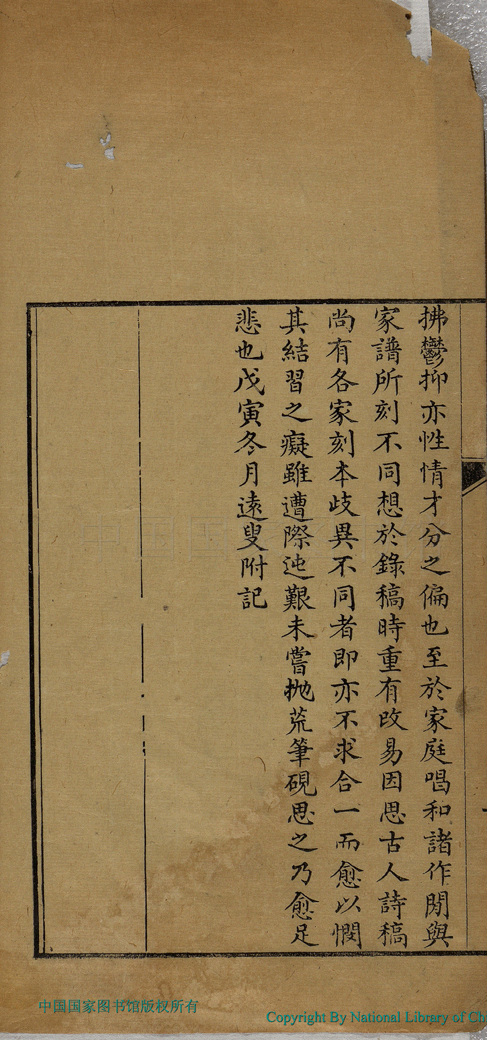 拂鬱抑亦性情才分之偏也至於家庭唱和諸作間與
家譜所刻不同想於錄稿時重有改易因思古人詩稿
尚有各家刻本歧異不同者即亦不求合一而愈以憫
其結習之癡雖遭際迍艱未嘗拋荒筆硯思之乃愈足
悲也戊寅冬月遠叟附記
中国国家图书馆版权所有
Copyright By National Library of Ch